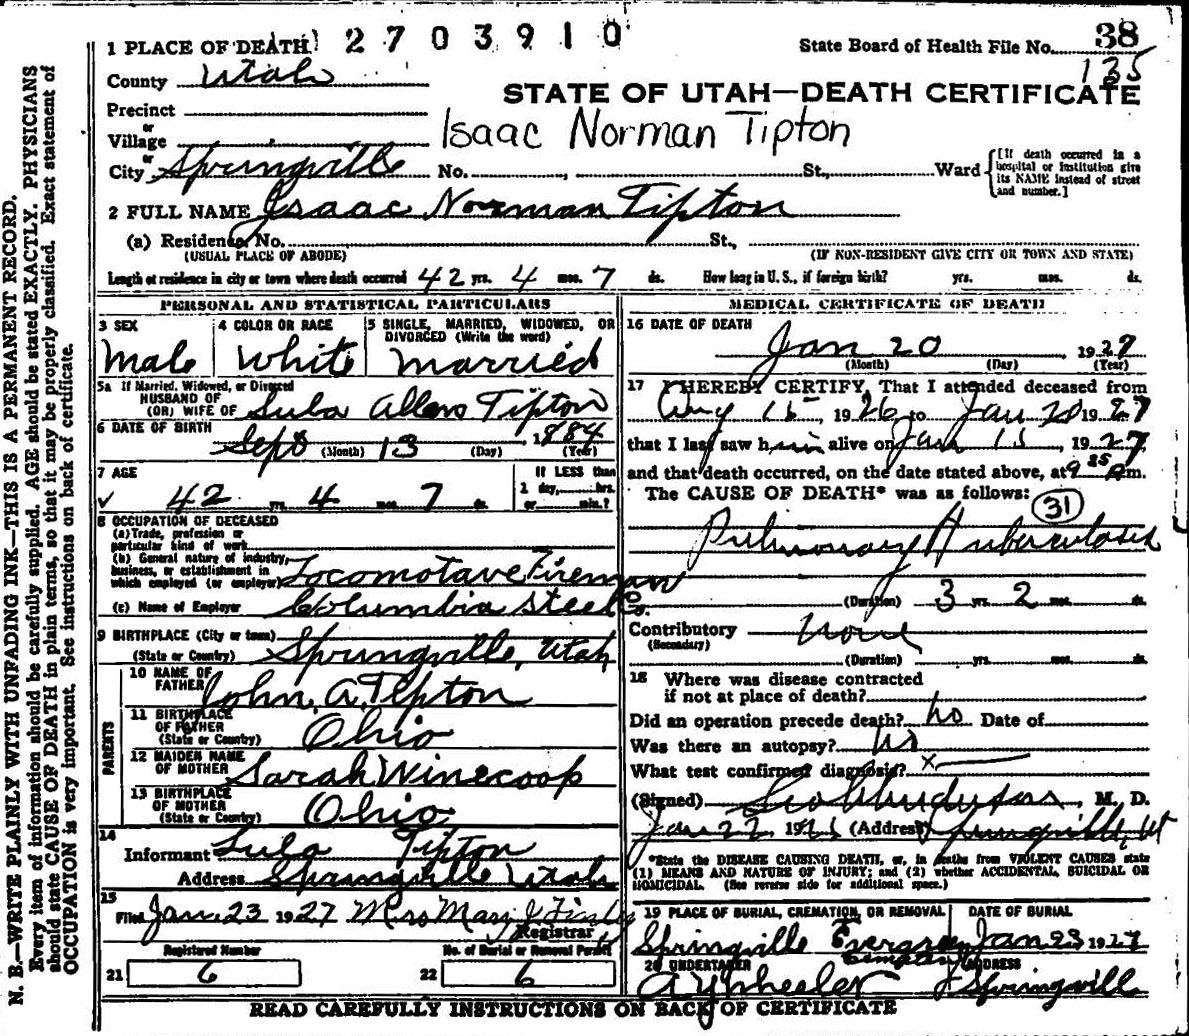 1 PLACE OF DEATH 2 7 0 3 9 1 0 State Board of Health File No. 38
135
County Utah
STATE OF UTAH—DEATH CERTIFICATE
Precinct
or
Village
Isaac Norman Tipton
or
City Springville No. , St., Ward [If death occurred in a hospital or institution give its NAME instead of street and number.]
2 FULL NAME Isaac Norman Tipton
(a) Residence, No. St.,
(USUAL PLACE OF ABODE) (IF NON-RESIDENT GIVE CITY OR TOWN AND STATE)
Length of residence in city or town where death occurred 42 yrs. 4 mos. 7 ds. How long in U. S., if foreign birth? yrs. mos. ds.
PERSONAL AND STATISTICAL PARTICULARS
3 SEX 4 COLOR OR RACE 5 SINGLE, MARRIED, WIDOWED, OR
DIVORCED (Write the word)
Male White Married
5a If Married, Widowed, or Divorced
HUSBAND OF
(OR) WIFE OF Luba Allen Tipton
6 DATE OF BIRTH Sept 13 1884
(Month) (Day) (Year)
7 AGE If LESS than
42 yrs. 4 mos. 7 ds. 1 day, hrs.
or min.?
8 OCCUPATION OF DECEASED
(a) Trade, profession or
particular kind of work
(b) General nature of industry,
business, or establishment in
which employed (or employer) Locomotave Fireman
(c) Name of Employer Columbia Steel Co.
9 BIRTHPLACE (City or town)
(State or Country) Springville, Utah
PARENTS
10 NAME OF
FATHER John A. Tipton
11 BIRTHPLACE
OF FATHER
(State or Country) Ohio
12 MAIDEN NAME
OF MOTHER Sarah Winecoop
13 BIRTHPLACE
OF MOTHER
(State or Country) Ohio
14
Informant Luba Tipton
Address Springville Utah
15
Filed Jan. 23 1927 Mrs Mary J
Registrar
Registered Number No. of Burial or Removal Permit
21 6 22 6
MEDICAL CERTIFICATE OF DEATH
16 DATE OF DEATH
Jan 20 1927
(Month) (Day) (Year)
17 I HEREBY CERTIFY, That I attended deceased from
Aug 15, 1926 to Jan 20 1927
that I last saw him alive on Jan 15, 1927
and that death occurred, on the date stated above, at 9 25 m.
The CAUSE OF DEATH* was as follows:
31
Pulmonary Tuberculosis
(Duration) 3 yrs. 2 mos. ds.
Contributory None
(Secondary)
(Duration) yrs. mos. ds.
18 Where was disease contracted
if not at place of death?
Did an operation precede death? No Date of
Was there an autopsy? No
What test confirmed diagnosis? x
(Signed) , M. D.
Jan 22, 192 (Address) Springville, Ut
*State the DISEASE CAUSING DEATH, or, in deaths from VIOLENT CAUSES state
(1) MEANS AND NATURE OF INJURY; and (2) whether ACCIDENTAL, SUICIDAL OR
HOMICIDAL. (See reverse side for additional space.)
19 PLACE OF BURIAL, CREMATION, OR REMOVAL DATE OF BURIAL
Springville Evergreen Jan 23 1927
Cemetery
20 UNDERTAKER ADDRESS
A Y Wheeler Springville
READ CAREFULLY INSTRUCTIONS ON BACK OF CERTIFICATE
N. B.—WRITE PLAINLY WITH UNFADING INK—THIS IS A PERMANENT RECORD.
Every item of information should be carefully supplied. AGE should be stated EXACTLY. PHYSICIANS
should state CAUSE OF DEATH in plain terms, so that it may be properly classified. Exact statement of
OCCUPATION is very important. See instructions on back of certificate.